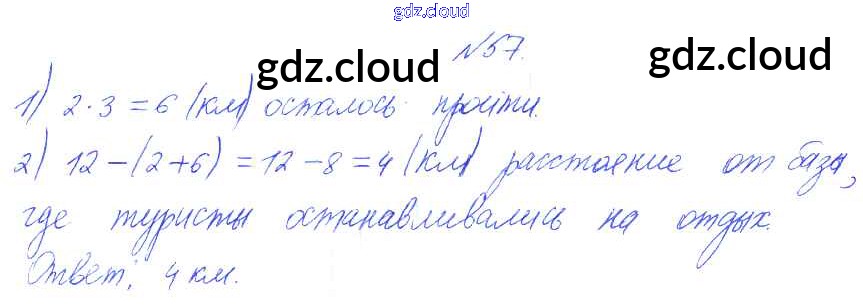 gdz.cloud
№57.
gdz.cloud gdz.cloud
1) 2·3=6 (км) осталось пройти.
2) 12-(2+6)=12-8=4 (км) расстояние от базы,
где туристы останавливались на отдых.
Ответ: 4 км.